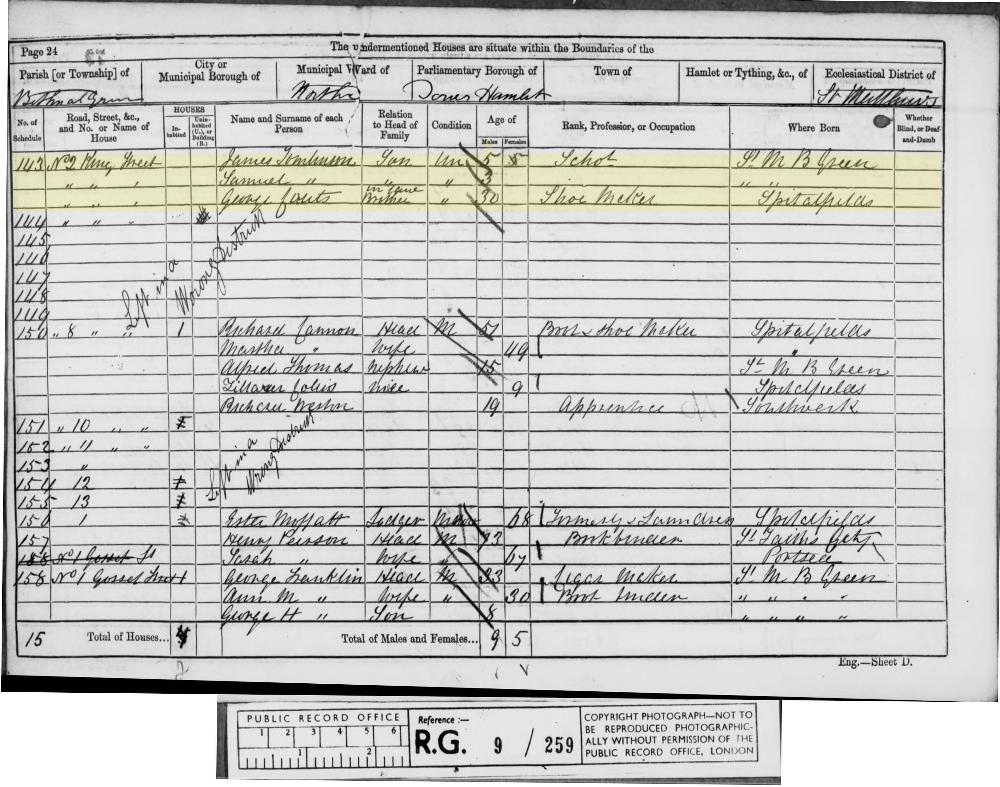 Page 24
The undermentioned Houses are situate within the Boundaries of the
Parish [or Township] of
City or Municipal Borough of
Municipal Ward of
Parliamentary Borough of
Town of
Hamlet or Tything, &c., of
Ecclesiastical District of
Bethnal Green
North
Tower Hamlets
St Matthews
No. of Schedule
Road, Street, &c., and No. or Name of House
HOUSES
Inhabited
Uninhabited (U.), or Building (B.)
Name and Surname of each Person
Relation to Head of Family
Condition
Age of
Males
Females
Rank, Profession, or Occupation
Where Born
Whether Blind, or Deaf-and-Dumb
143 No 2 Street James Tomlinson Son Un 5 Schol St M B Green
" " " Samuel " " " 3 " "
" " " George in Law Brother " 30 Shoe Maker Spitalfields
144 " " "
145
146
147
148
149
Left in a Wrong District
150 " 8 " " 1 Richard Cannon Head M 51 Boot & Shoe Maker Spitalfields
Martha " Wife 49 "
Alfred Thomas Nephew 15 St M B Green
Niece 9 Spitalfields
19 Apprentice Southwark
151 " 10 " "
152 " 11 " "
153 "
154 12
155 13
Left in a Wrong District
156 1 Ester Moffatt Lodger 68 Formerly a Laundress Spitalfields
157 Henry Peirson Head M 73 Bookbinder St Faiths City
158 No 1 Gosset St Sarah " Wife " 67 Portsea
158 No 1 Gosset Street 1 George Franklin Head M 33 Cigar Maker St M B Green
Ann M " Wife " 30 Boot binder " " " "
George H " Son 8 " " " "
15 Total of Houses... 4 Total of Males and Females... 9 5
Eng.—Sheet D.
PUBLIC RECORD OFFICE
1 2 3 4 5 6
1 2
Reference :—
R.G. 9 / 259
COPYRIGHT PHOTOGRAPH—NOT TO
BE REPRODUCED PHOTOGRAPHIC-
ALLY WITHOUT PERMISSION OF THE
PUBLIC RECORD OFFICE, LONDON